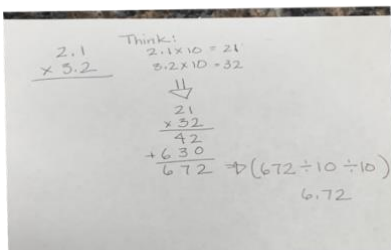 2.1
× 3.2
Think:
2.1×10 = 21
3.2×10 = 32
21
× 32
42
+630
672 ⇒ (672÷10÷10)
6.72